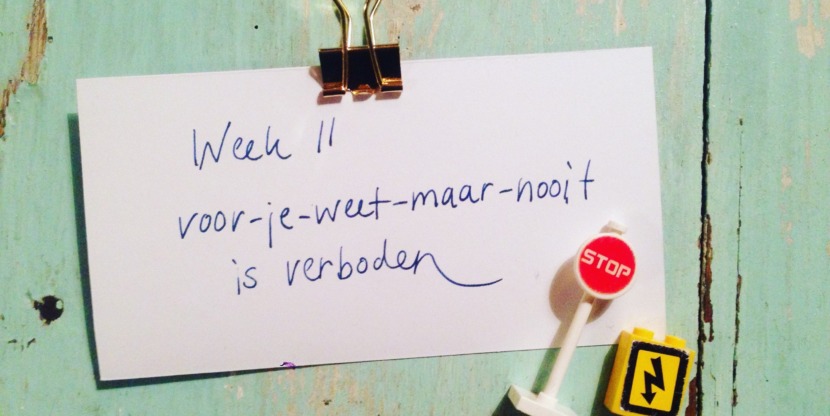 Week 11
voor-je-weet-maar-nooit
is verboden
STOP